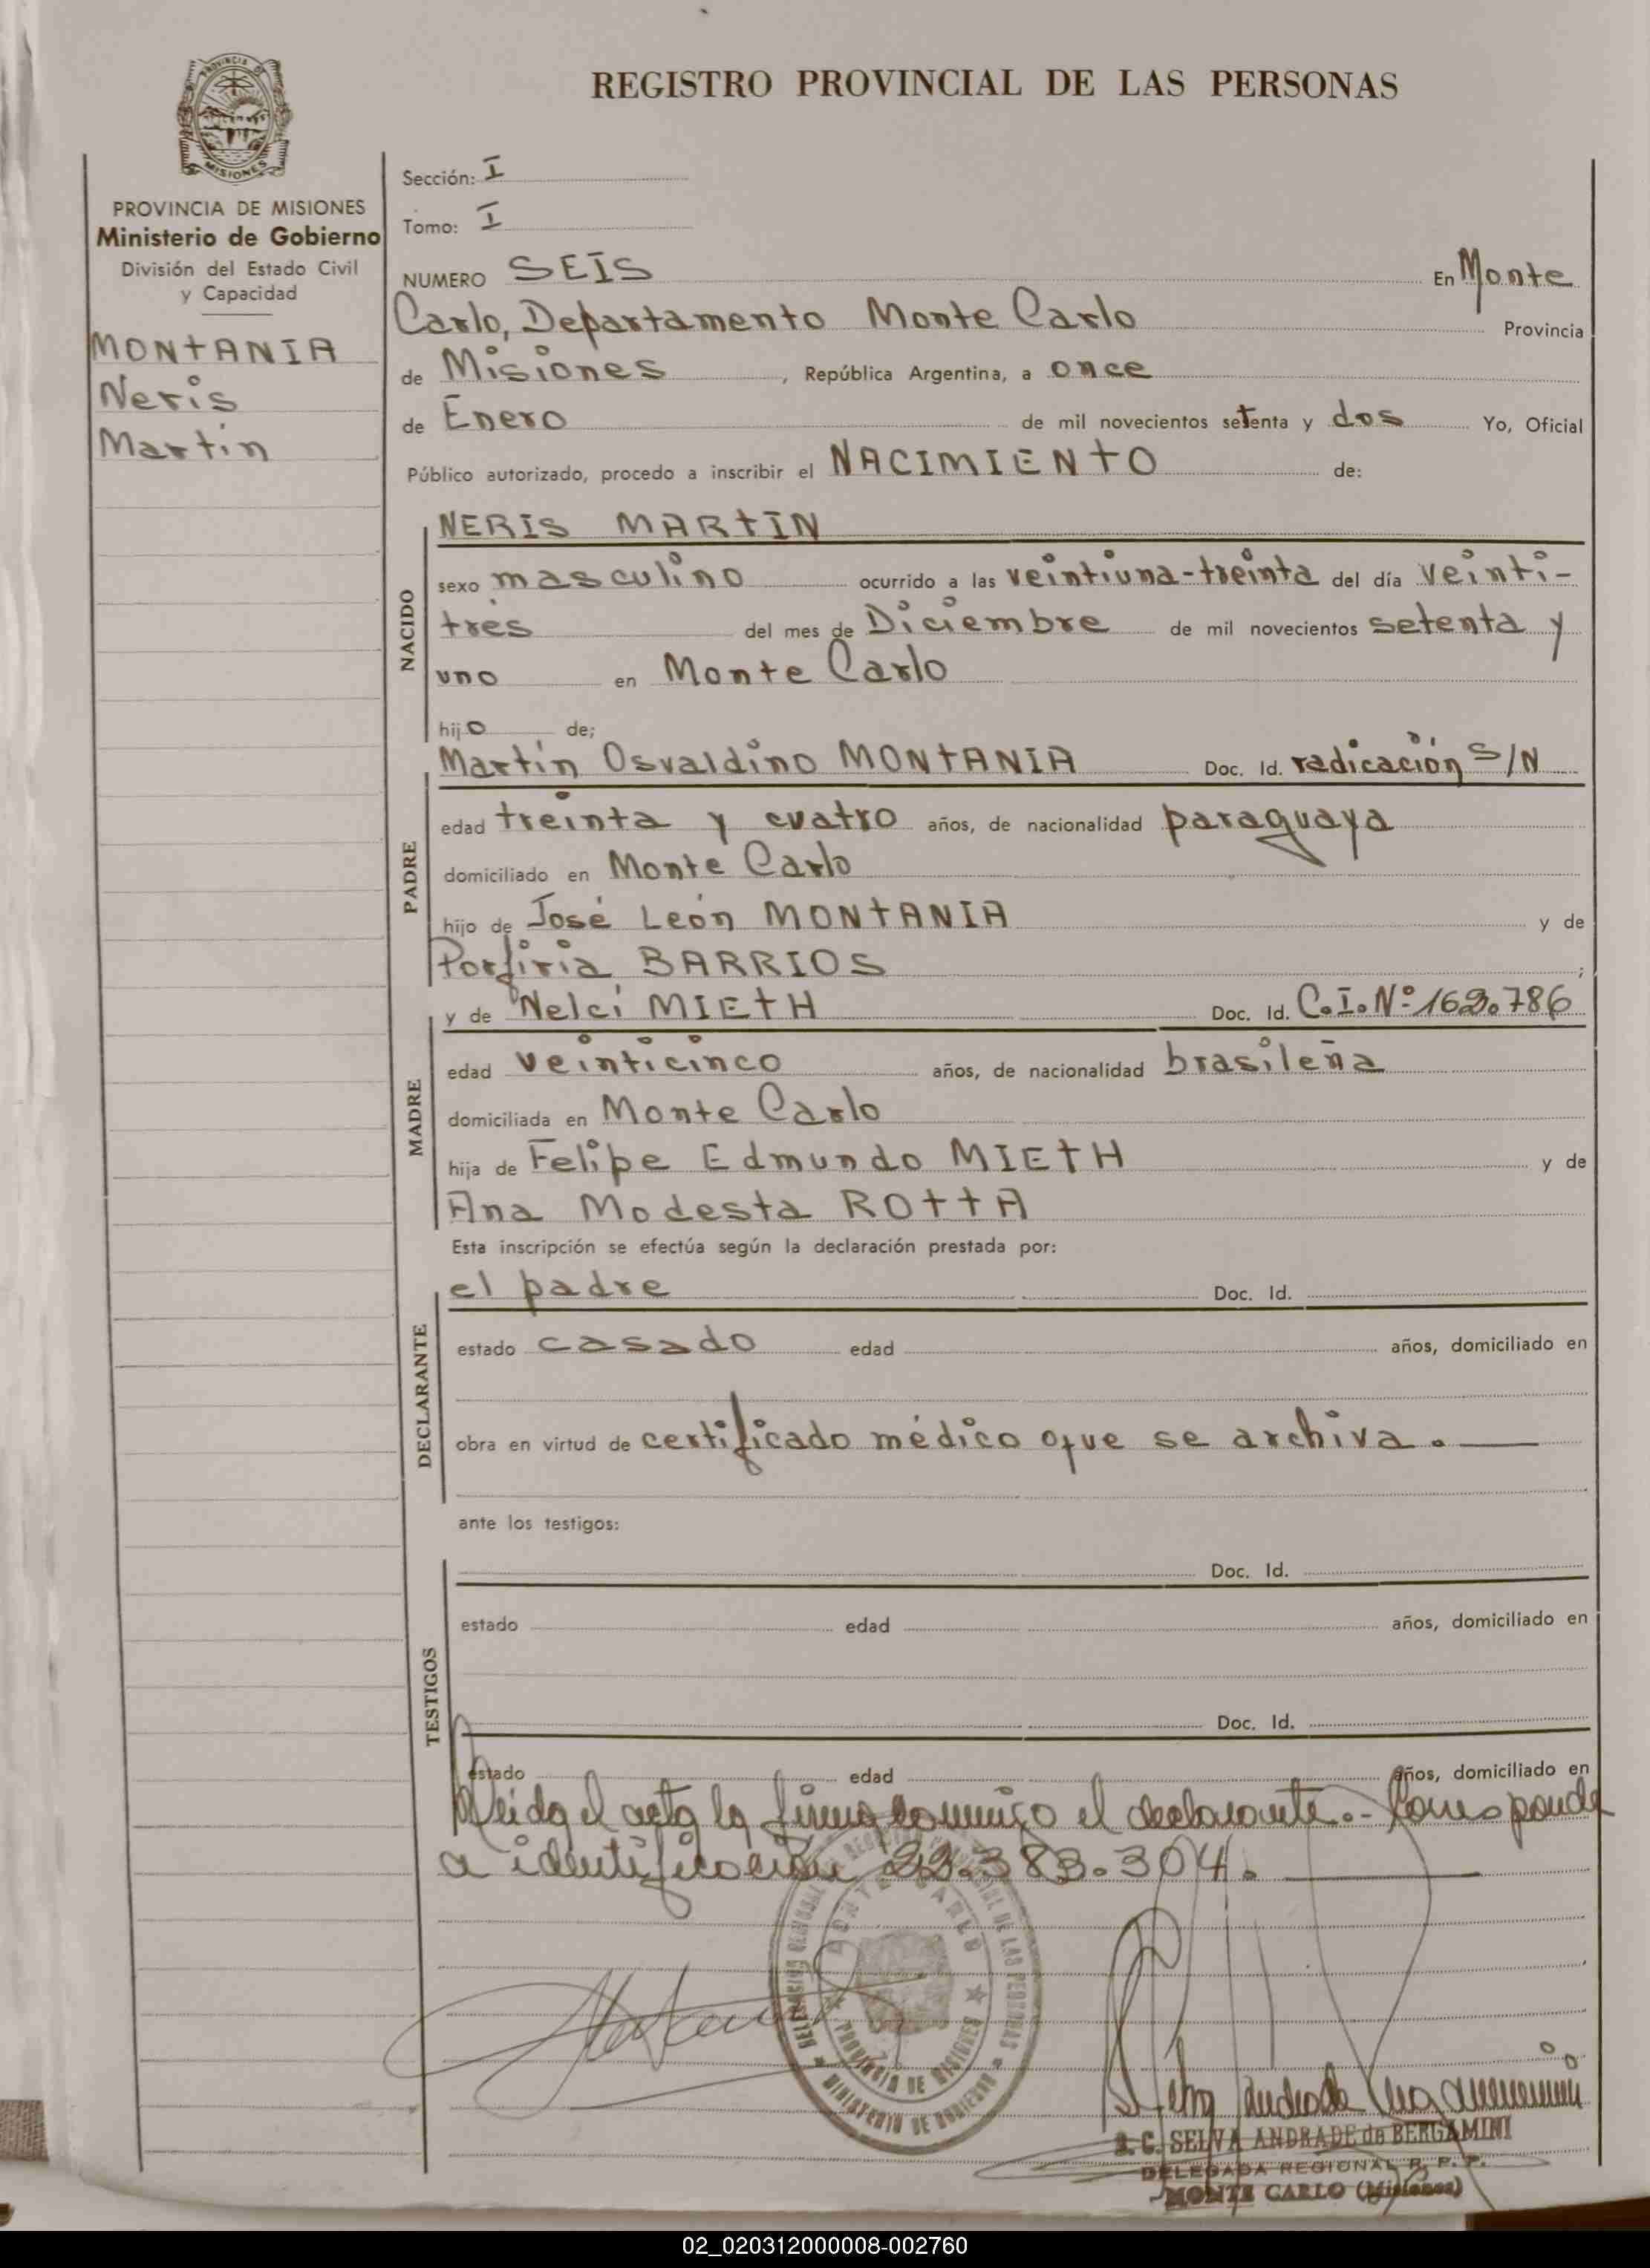 REGISTRO PROVINCIAL DE LAS PERSONAS
PROVINCIA
MISIONES
PROVINCIA DE MISIONES
Ministerio de Gobierno
División del Estado Civil
y Capacidad
MONTANIA
Neris
Martín
Sección: I
Tomo: I
NUMERO SEIS En Monte
Carlo, Departamento Monte Carlo Provincia
de Misiones, República Argentina, a once
de Enero de mil novecientos setenta y dos Yo, Oficial
Público autorizado, procedo a inscribir el NACIMIENTO de:
NACIDO
NERIS MARTIN
sexo masculino ocurrido a las veintiuna-treinta del día veinti-
trés del mes de Diciembre de mil novecientos setenta y
uno en Monte Carlo
hijo de;
PADRE
Martín Osvaldino MONTANIA Doc. Id. radicación S/N
edad treinta y cuatro años, de nacionalidad paraguaya
domiciliado en Monte Carlo
hijo de José León MONTANIA y de
Porfiria BARRIOS ;
MADRE
y de Nelci MIETH Doc. Id. C.I.Nº 169.786
edad veinticinco años, de nacionalidad brasileña
domiciliada en Monte Carlo
hija de Felipe Edmundo MIETH y de
Ana Modesta ROTTA
Esta inscripción se efectúa según la declaración prestada por:
DECLARANTE
el padre Doc. Id.
estado casado edad años, domiciliado en
obra en virtud de certificado médico que se archiva.
ante los testigos:
TESTIGOS
Doc. Id.
estado edad años, domiciliado en
Doc. Id.
estado edad años, domiciliado en
Leída el acta la firma conmigo el declarante.- Corresponde
a identificación 22.383.304.
MONTE CARLO
PROVINCIA DE MISIONES
MINISTERIO DE GOBIERNO
S. C. SELVA ANDRADE de BERGAMINI
DELEGADA REGIONAL R. P. P.
MONTE CARLO (Misiones)
02_020312000008-002760